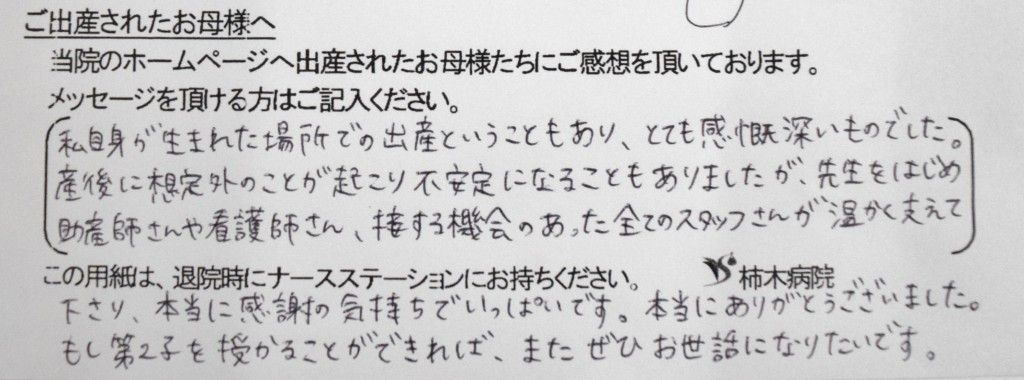 ご出産されたお母様へ
当院のホームページへ出産されたお母様たちにご感想を頂いております。
メッセージを頂ける方はご記入ください。
私自身が生まれた場所での出産ということもあり、とても感慨深いものでした。
産後に想定外のことが起こり不安定になることもありましたが、先生をはじめ
助産師さんや看護師さん、接する機会のあった全てのスタッフさんが温かく支えて
この用紙は、退院時にナースステーションにお持ちください。 柿木病院
下さり、本当に感謝の気持ちでいっぱいです。本当にありがとうございました。
もし第2子を授かることができれば、またぜひお世話になりたいです。